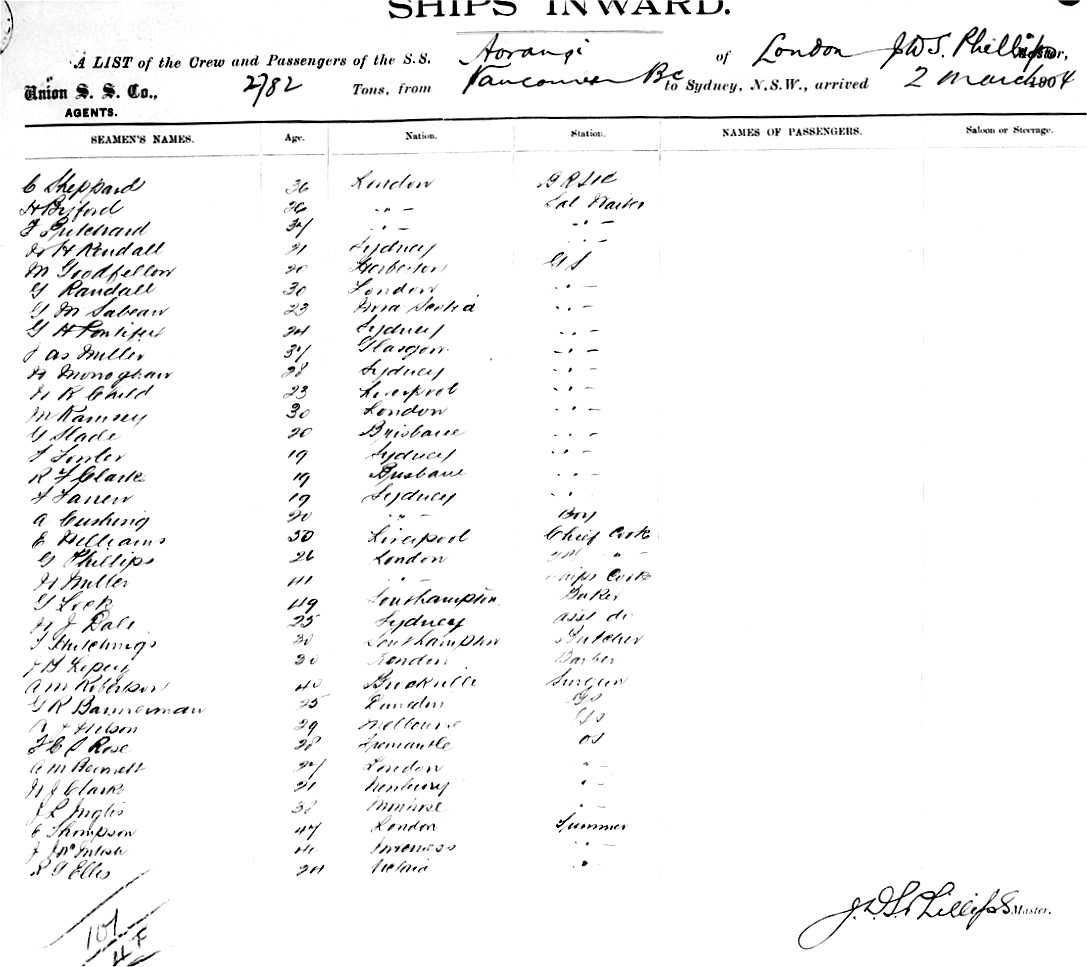 SHIPS INWARD.
A LIST of the Crew and Passengers of the S.S. Aorangi of London J.W.S. Phillips Master,
Union S. S. Co., 2782 Tons, from Vancouver BC to Sydney, N.S.W., arrived 2 March 1904
AGENTS.
SEAMEN'S NAMES. Age. Nation. Station. NAMES OF PASSENGERS. Saloon or Steerage.
C Sheppard 36 London
H Byford 26 " - Sal Waiter
F Pritchard " - " -
H Kendall 21 Sydney " -
M Goodfellow 20 Herberton G S
G Randall 30 London " -
G M Sabean 23 Nova Scotia " -
G H Pontifex 24 Sydney " -
Jas Miller Glasgow " -
Monoghan 28 Sydney " -
R Child 23 Liverpool " -
M Ramsey 30 London " -
G Slade 20 Brisbane " -
19 Sydney " -
R F Clark 19 Brisbane " -
F Farren 19 Sydney " -
A Cushing 20 " - Boy
E Williams 30 Liverpool Chief Cook
G Phillips 26 London "
Miller " - Ships Cook
G Lock 49 Southampton Baker
J Dale 25 Sydney asst do
Hutchings 30 Southampton Butcher
30 London Barber
A M Robertson 40 Surgeon
G R Bannerman 25 Dunedin
29 Melbourne
F C S Rose 28 Fremantle
A M Bennett London " -
J Clark 21 " -
J L Inglis 38 " -
C Thompson 47 London
J McIntosh Inverness " -
Ellis 24 Victoria "
107
4 F
J.W.S. Phillips Master.